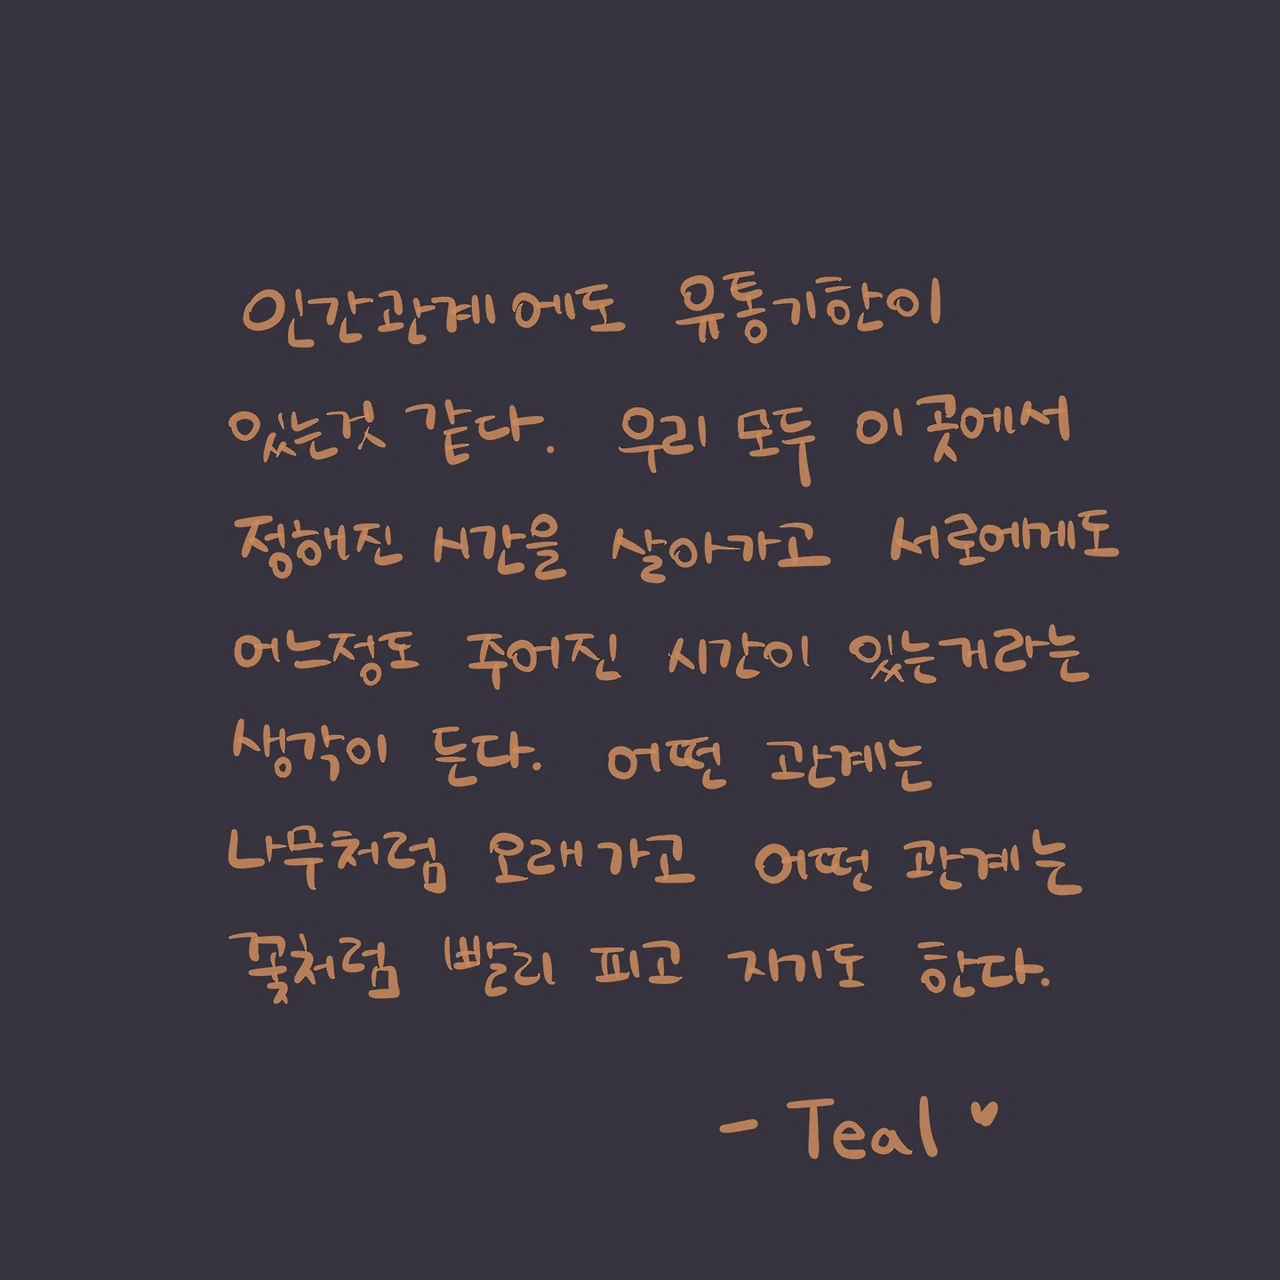 인간관계에도 유통기한이
있는것 같다. 우리 모두 이 곳에서
정해진 시간을 살아가고 서로에게도
어느정도 주어진 시간이 있는거라는
생각이 든다. 어떤 관계는
나무처럼 오래가고 어떤 관계는
꽃처럼 빨리 피고 지기도 한다.
- Teal ♥